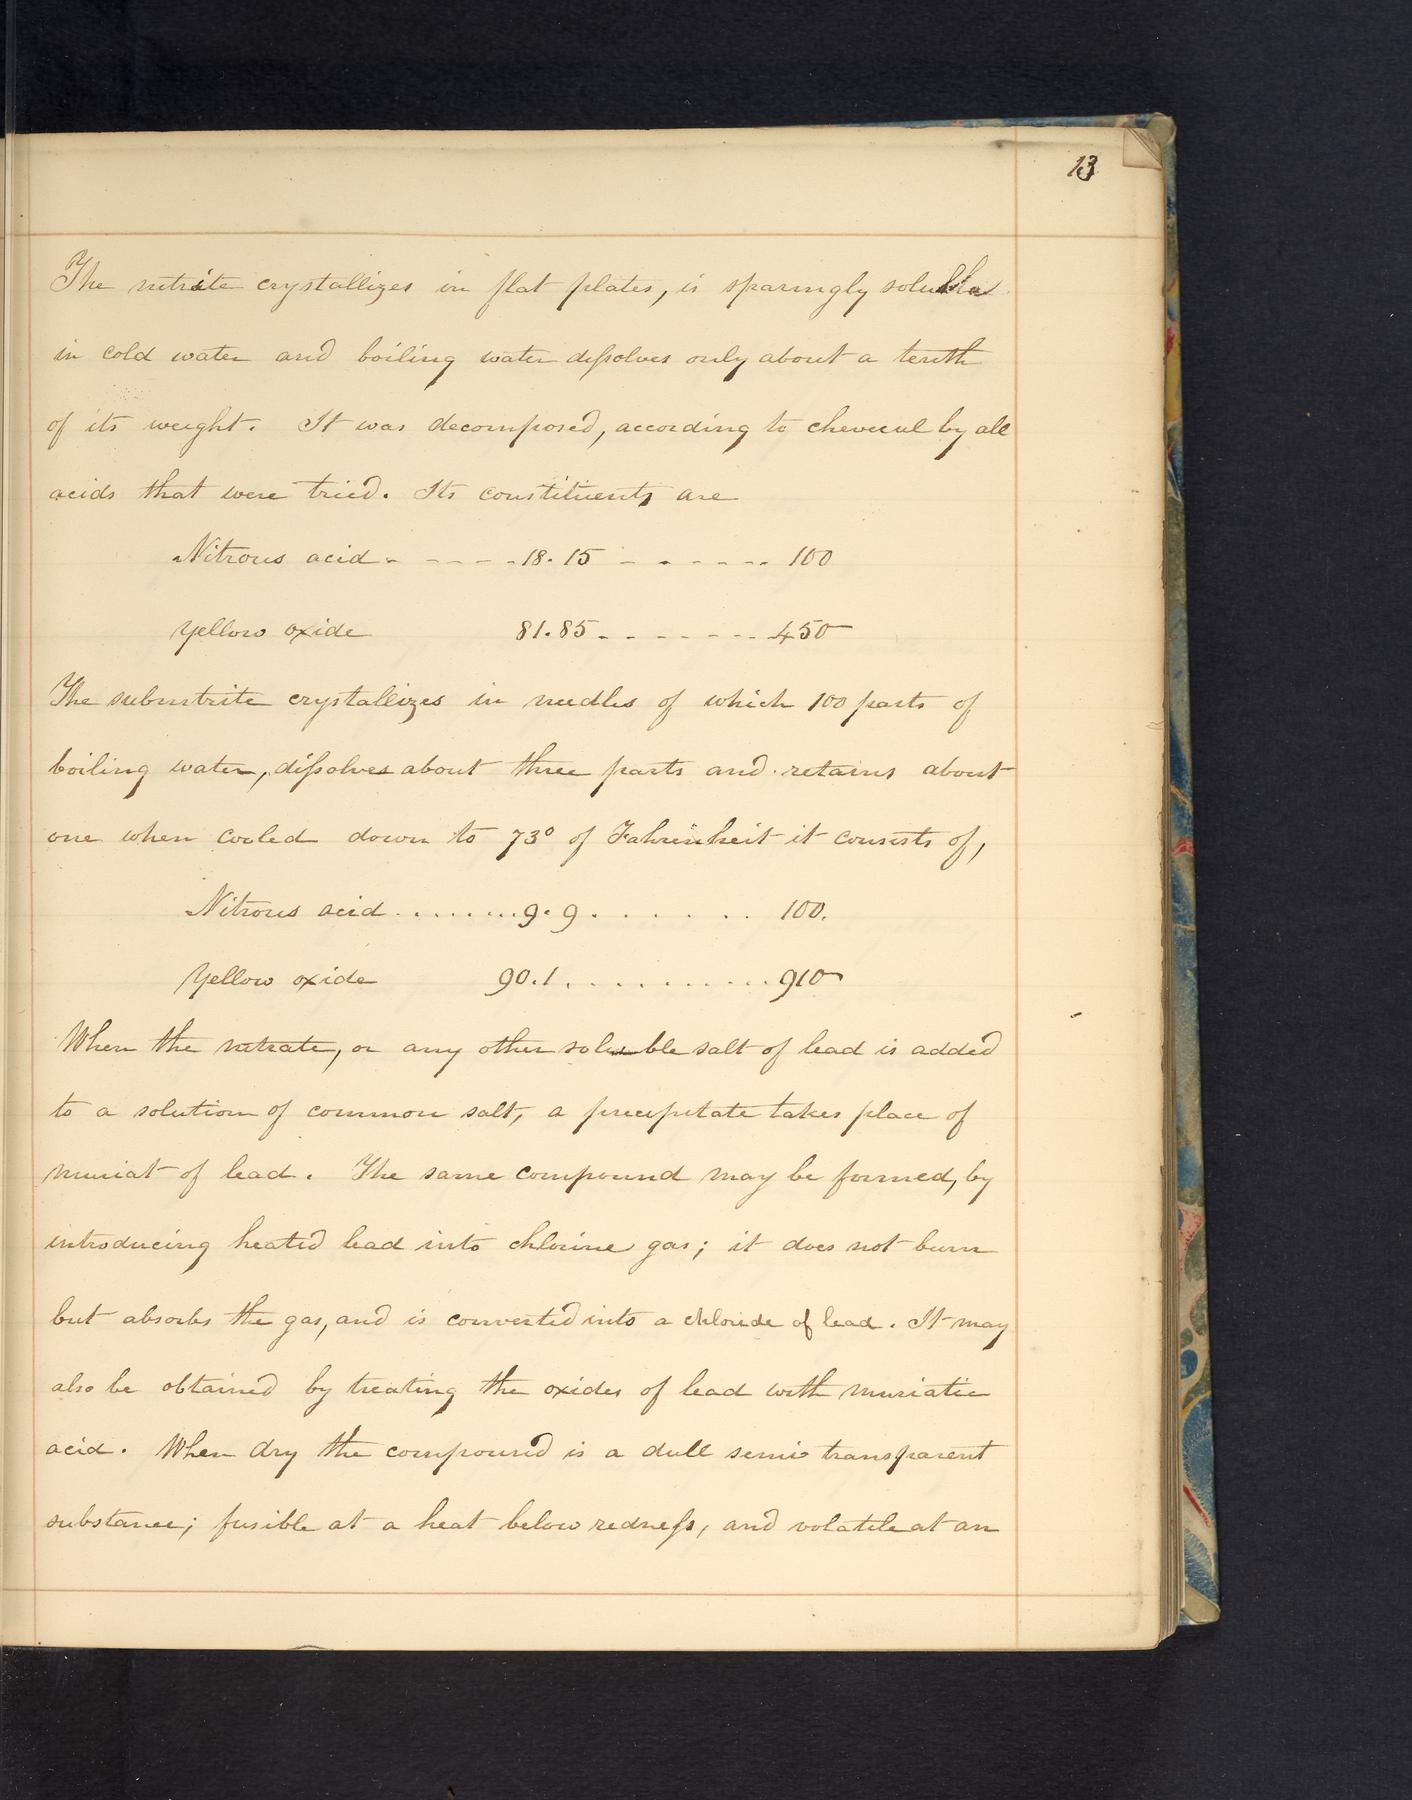 13
The nitrite crystallizes in flat plates, is sparingly soluble
in cold water and boiling water dissolves only about a tenth
of its weight. It was decomposed, according to cheveeul by all
acids that were tried. Its constituents are
Nitrous acid - - - - - 18.15 - - - - - - - 100
Yellow oxide 81.85 - - - - - - - 450
The subnitrite crystallizes in needles of which 100 parts of
boiling water, dissolves about three parts and retains about
one when cooled down to 73° of Fahrenheit it consists of,
Nitrous acid ........ 9.9 . . . . . . . 100.
Yellow oxide 90.1 . . . . . . . . . . . 910
When the nitrate, or any other soluble salt of lead is added
to a solution of common salt, a precipitate takes place of
muriat of lead. The same compound may be formed, by
introducing heated lead into chlorine gas; it does not burn
but absorbs the gas, and is converted into a chloride of lead. It may
also be obtained by treating the oxides of lead with muriatic
acid. When dry the compound is a dull semi transparent
substance; fusible at a heat below redness, and volatile at an